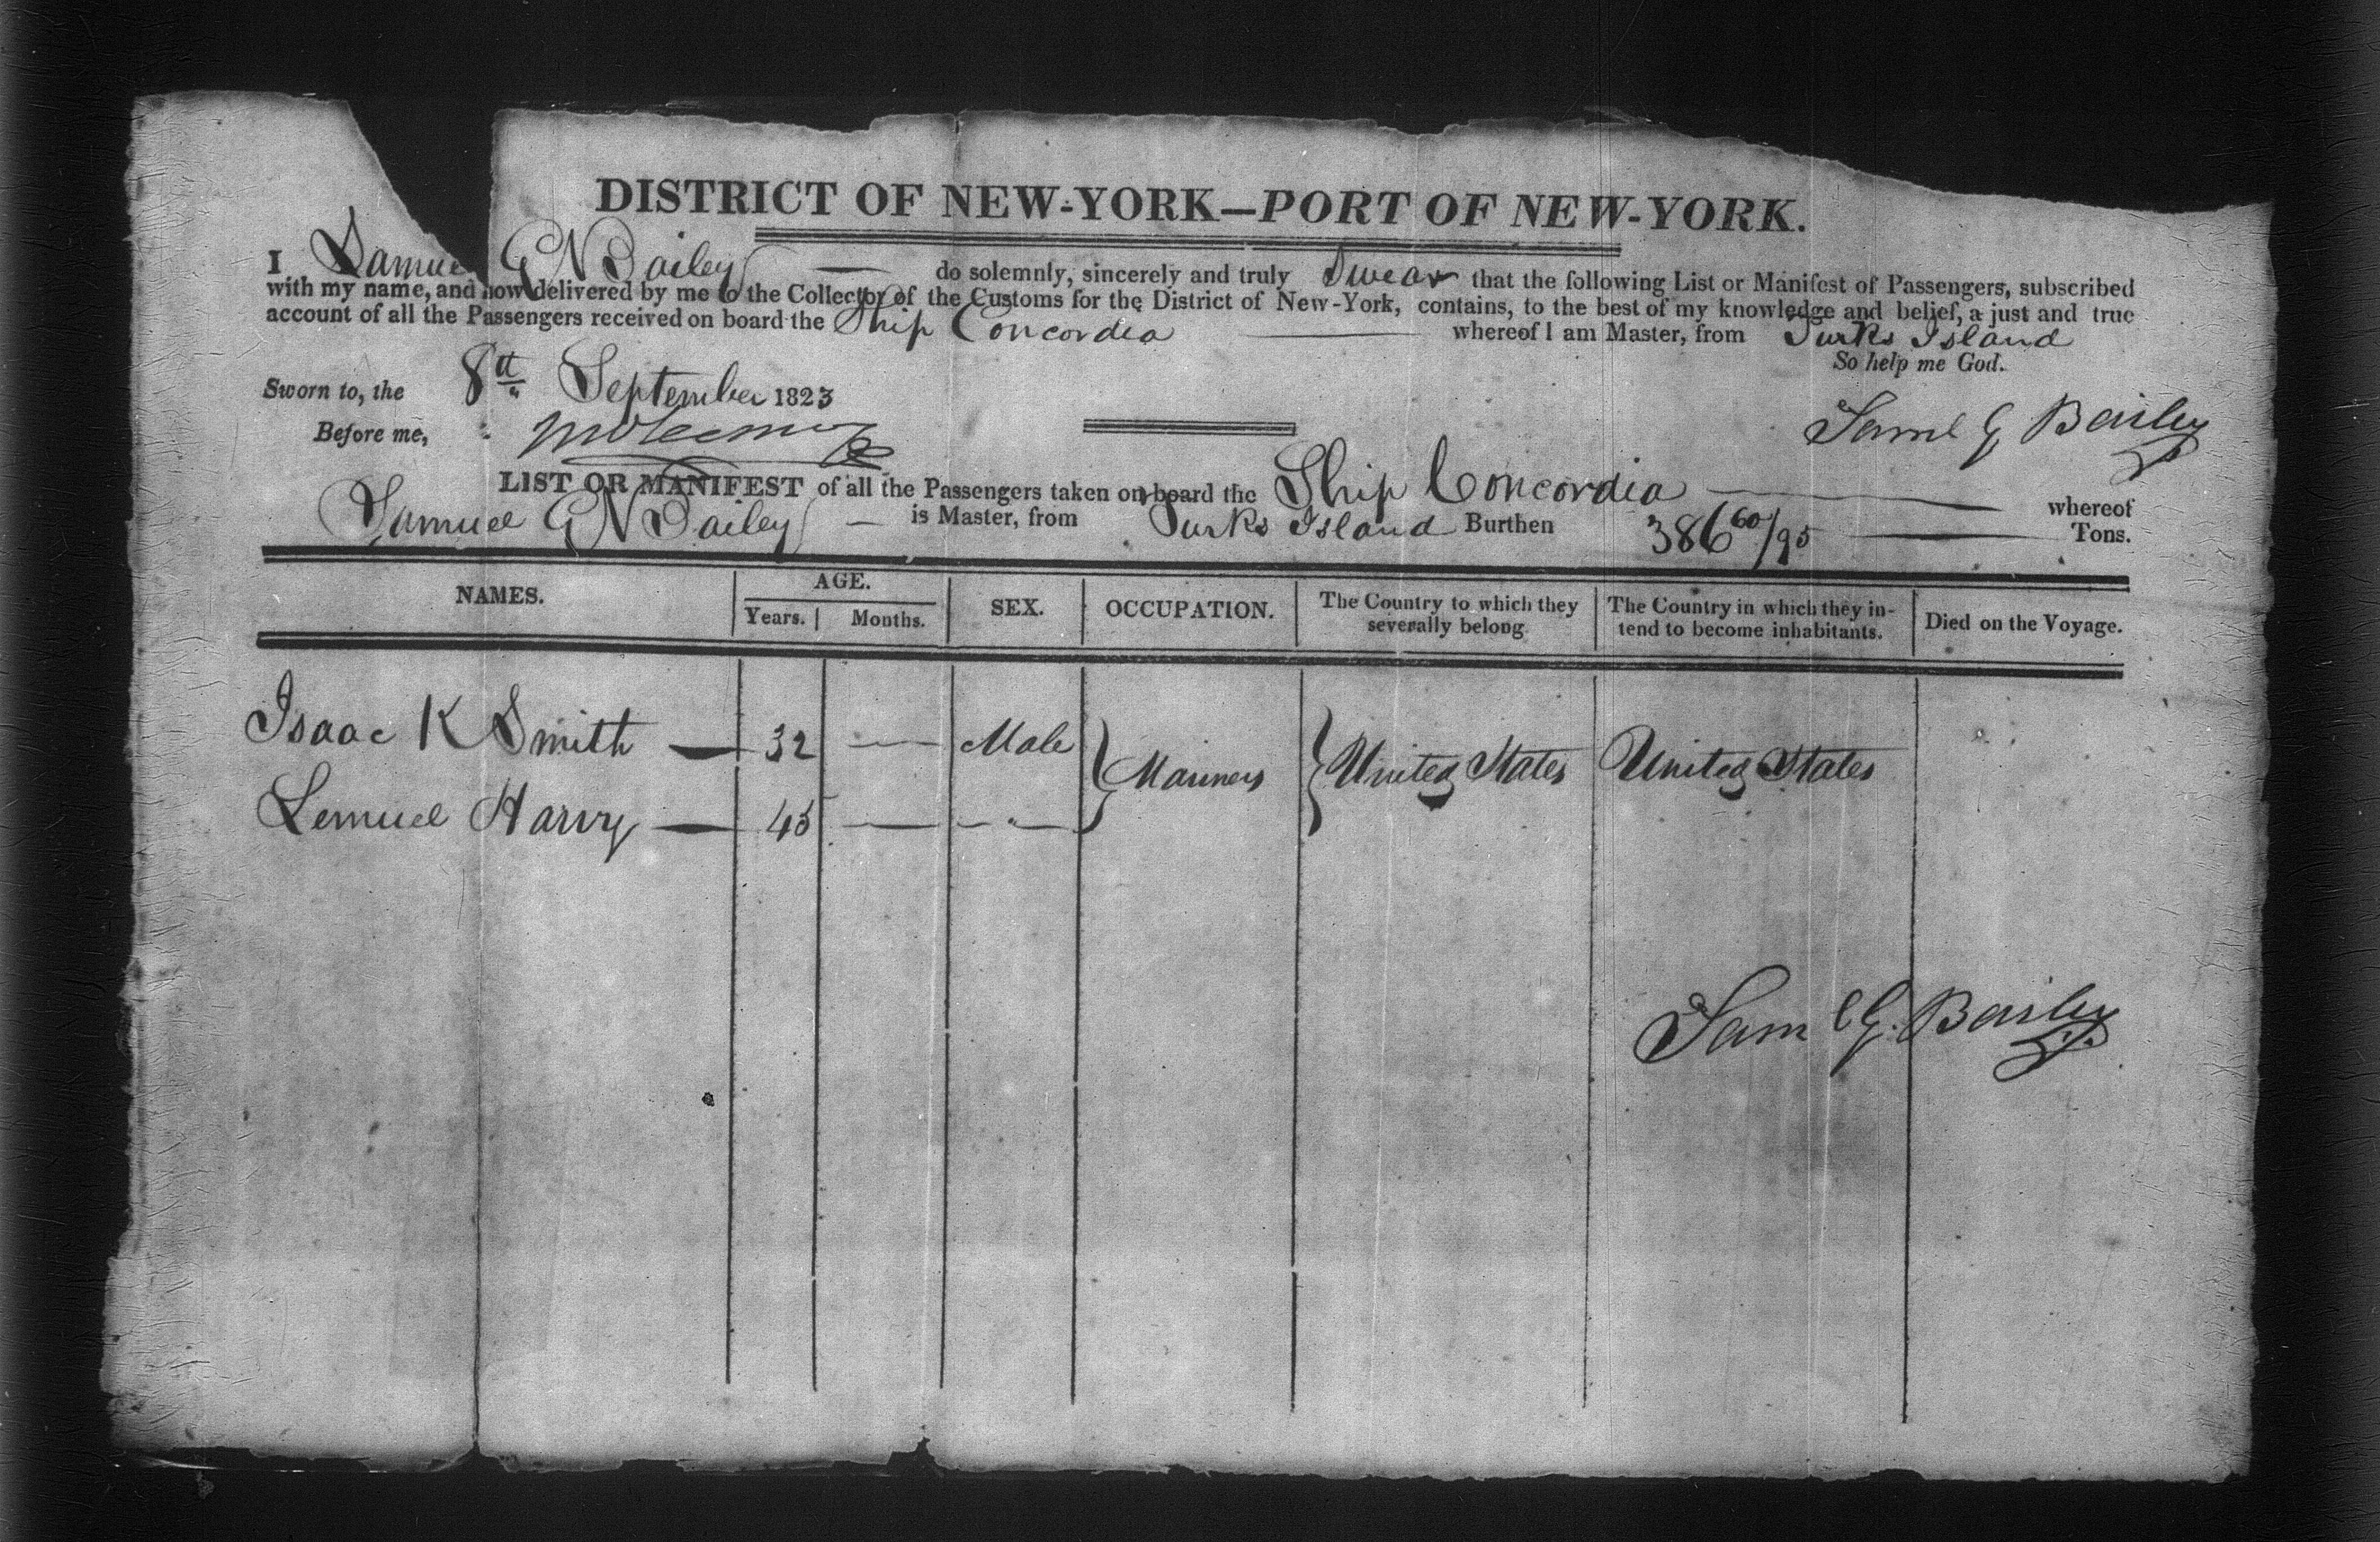 DISTRICT OF NEW-YORK—PORT OF NEW-YORK.
I Samuel G Bailey — do solemnly, sincerely and truly Swear that the following List or Manifest of Passengers, subscribed
with my name, and now delivered by me to the Collector of the Customs for the District of New-York, contains, to the best of my knowledge and belief, a just and true
account of all the Passengers received on board the Ship Concordia — whereof I am Master, from Turks Island
So help me God.
Sworn to, the 8th September 1823
Before me,
Saml G Bailey
LIST OR MANIFEST of all the Passengers taken on board the Ship Concordia — whereof
Samuel G Bailey — is Master, from Turks Island Burthen 386 60/95 — Tons.
NAMES. AGE. SEX. OCCUPATION. The Country to which they severally belong The Country in which they intend to become inhabitants. Died on the Voyage.
Years. Months.
Isaac K Smith — 32 — Male Mariners United States United States
Lemuel Harvy — 45 — - " -
Saml G. Bailey